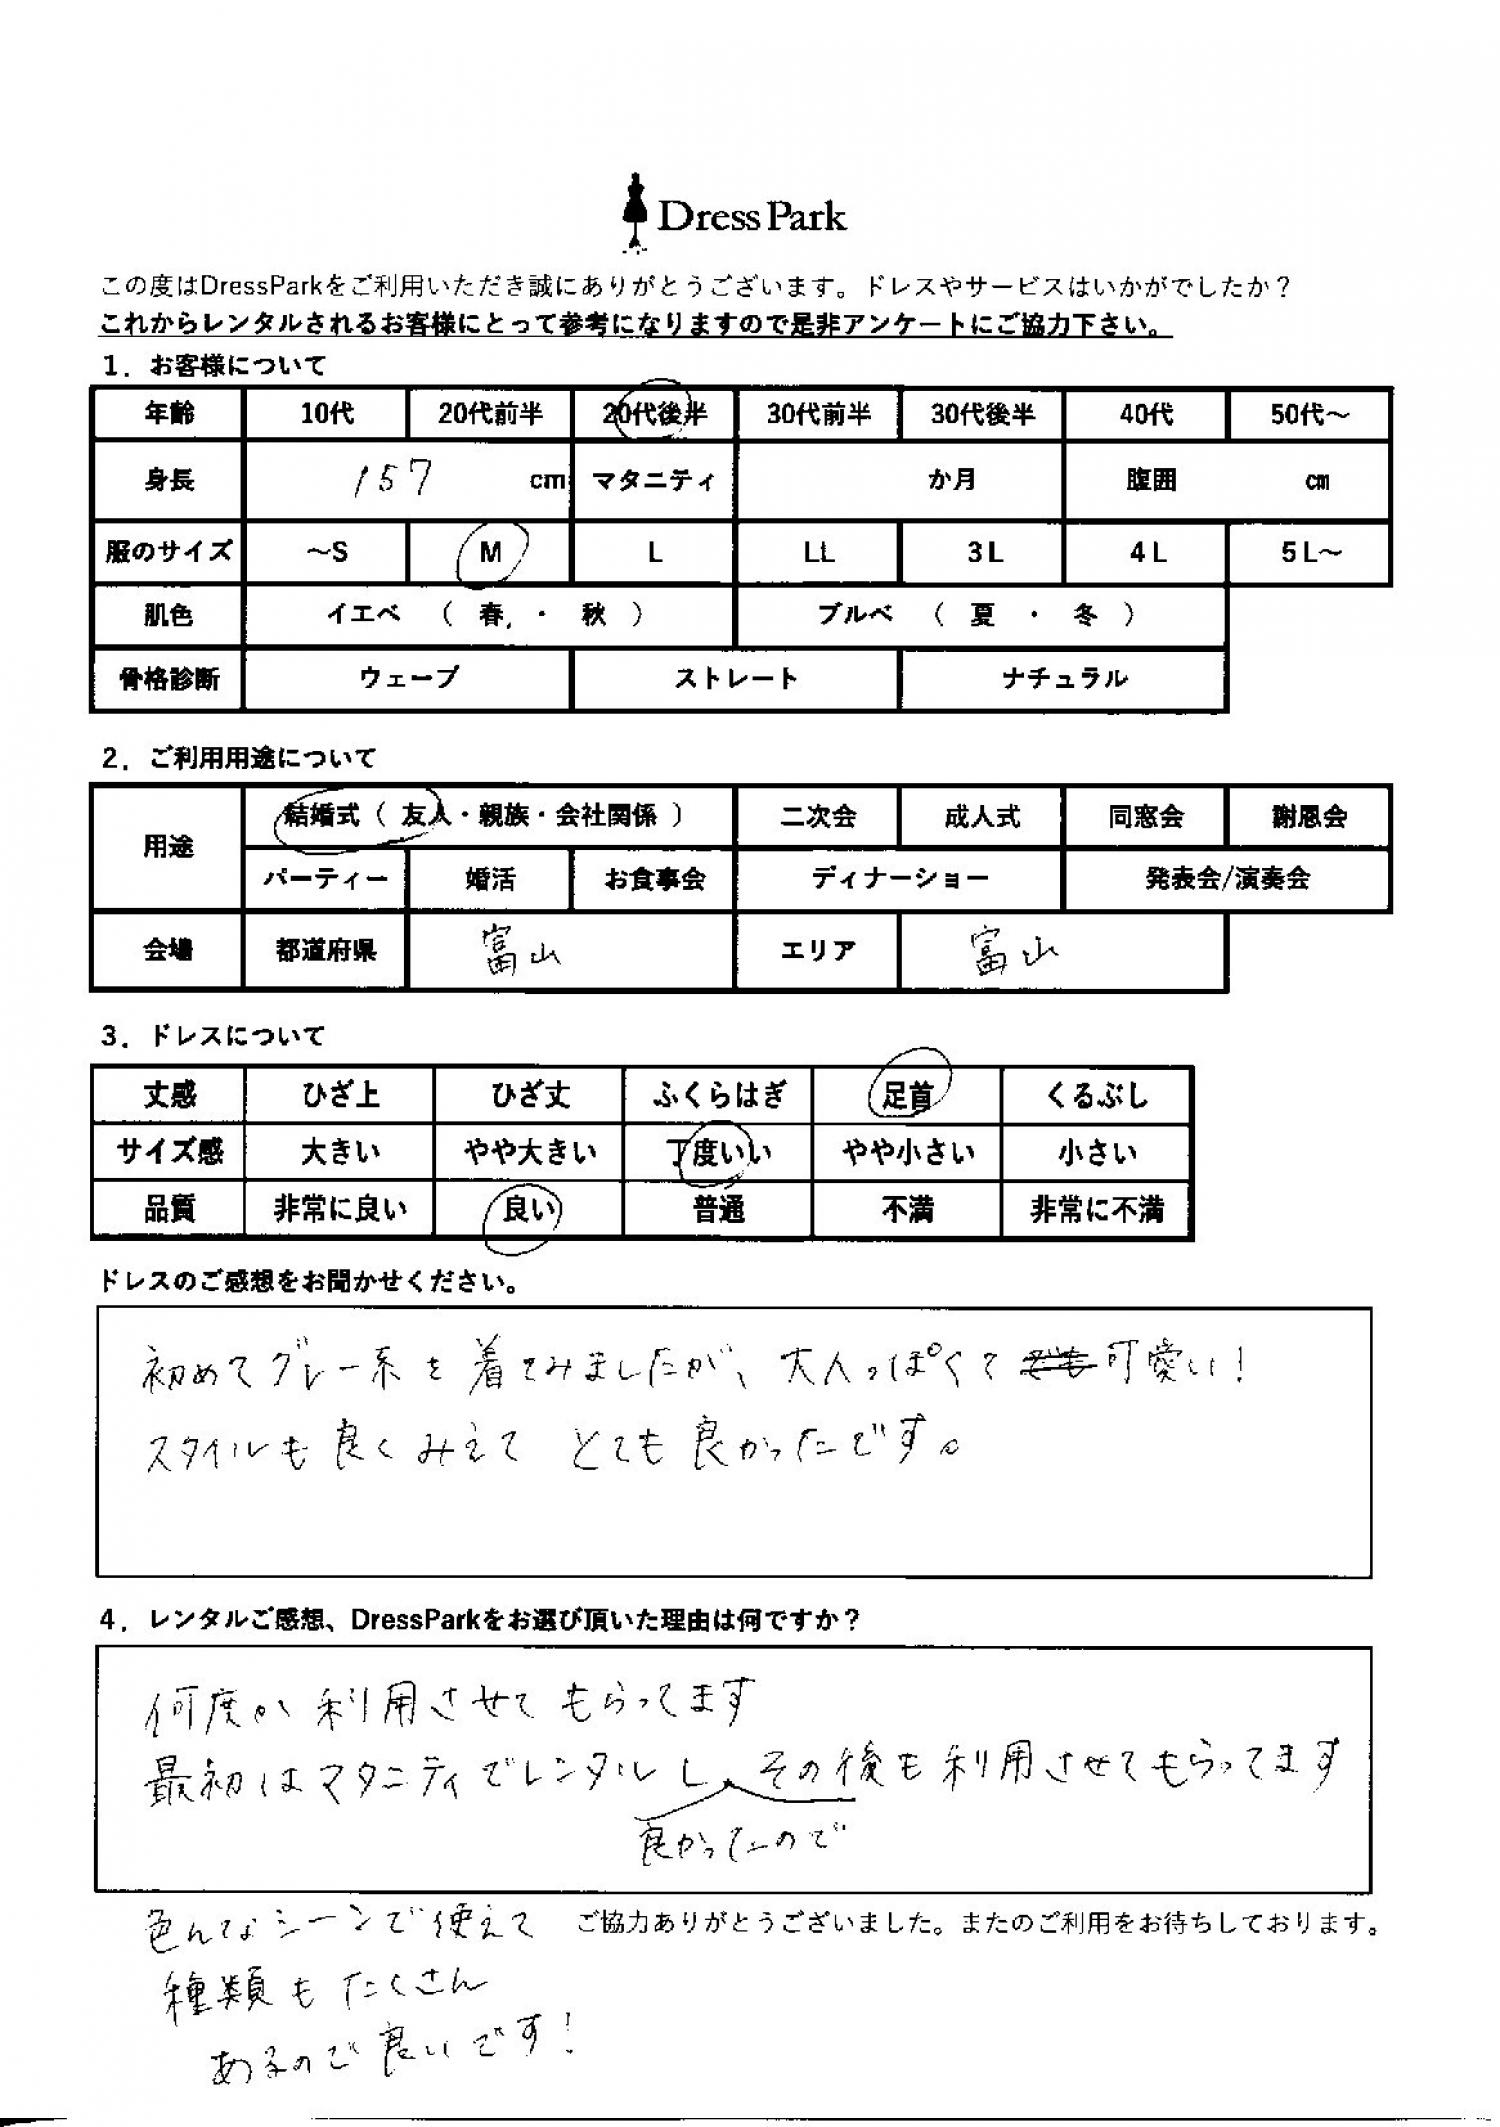 Dress Park
この度はDressParkをご利用いただき誠にありがとうございます。ドレスやサービスはいかがでしたか？
これからレンタルされるお客様にとって参考になりますので是非アンケートにご協力下さい。
1．お客様について
年齢 10代 20代前半 20代後半 30代前半 30代後半 40代 50代～
身長 157 cm マタニティ か月 腹囲 cm
服のサイズ ～S M L LL 3L 4L 5L～
肌色 イエベ（ 春 ・ 秋 ） ブルベ（ 夏 ・ 冬 ）
骨格診断 ウェーブ ストレート ナチュラル
2．ご利用用途について
用途 結婚式（ 友人・親族・会社関係 ） 二次会 成人式 同窓会 謝恩会
パーティー 婚活 お食事会 ディナーショー 発表会/演奏会
会場 都道府県 富山 エリア 富山
3．ドレスについて
丈感 ひざ上 ひざ丈 ふくらはぎ 足首 くるぶし
サイズ感 大きい やや大きい 丁度いい やや小さい 小さい
品質 非常に良い 良い 普通 不満 非常に不満
ドレスのご感想をお聞かせください。
初めてグレー系を着てみましたが、大人っぽくて可愛い！
スタイルも良くみえて とても良かったです。
4．レンタルご感想、DressParkをお選び頂いた理由は何ですか？
何度か利用させてもらってます
最初はマタニティでレンタルし、その後も利用させてもらってます
良かったので
色んなシーンで使えて ご協力ありがとうございました。またのご利用をお待ちしております。
種類もたくさん
あるので良いです！